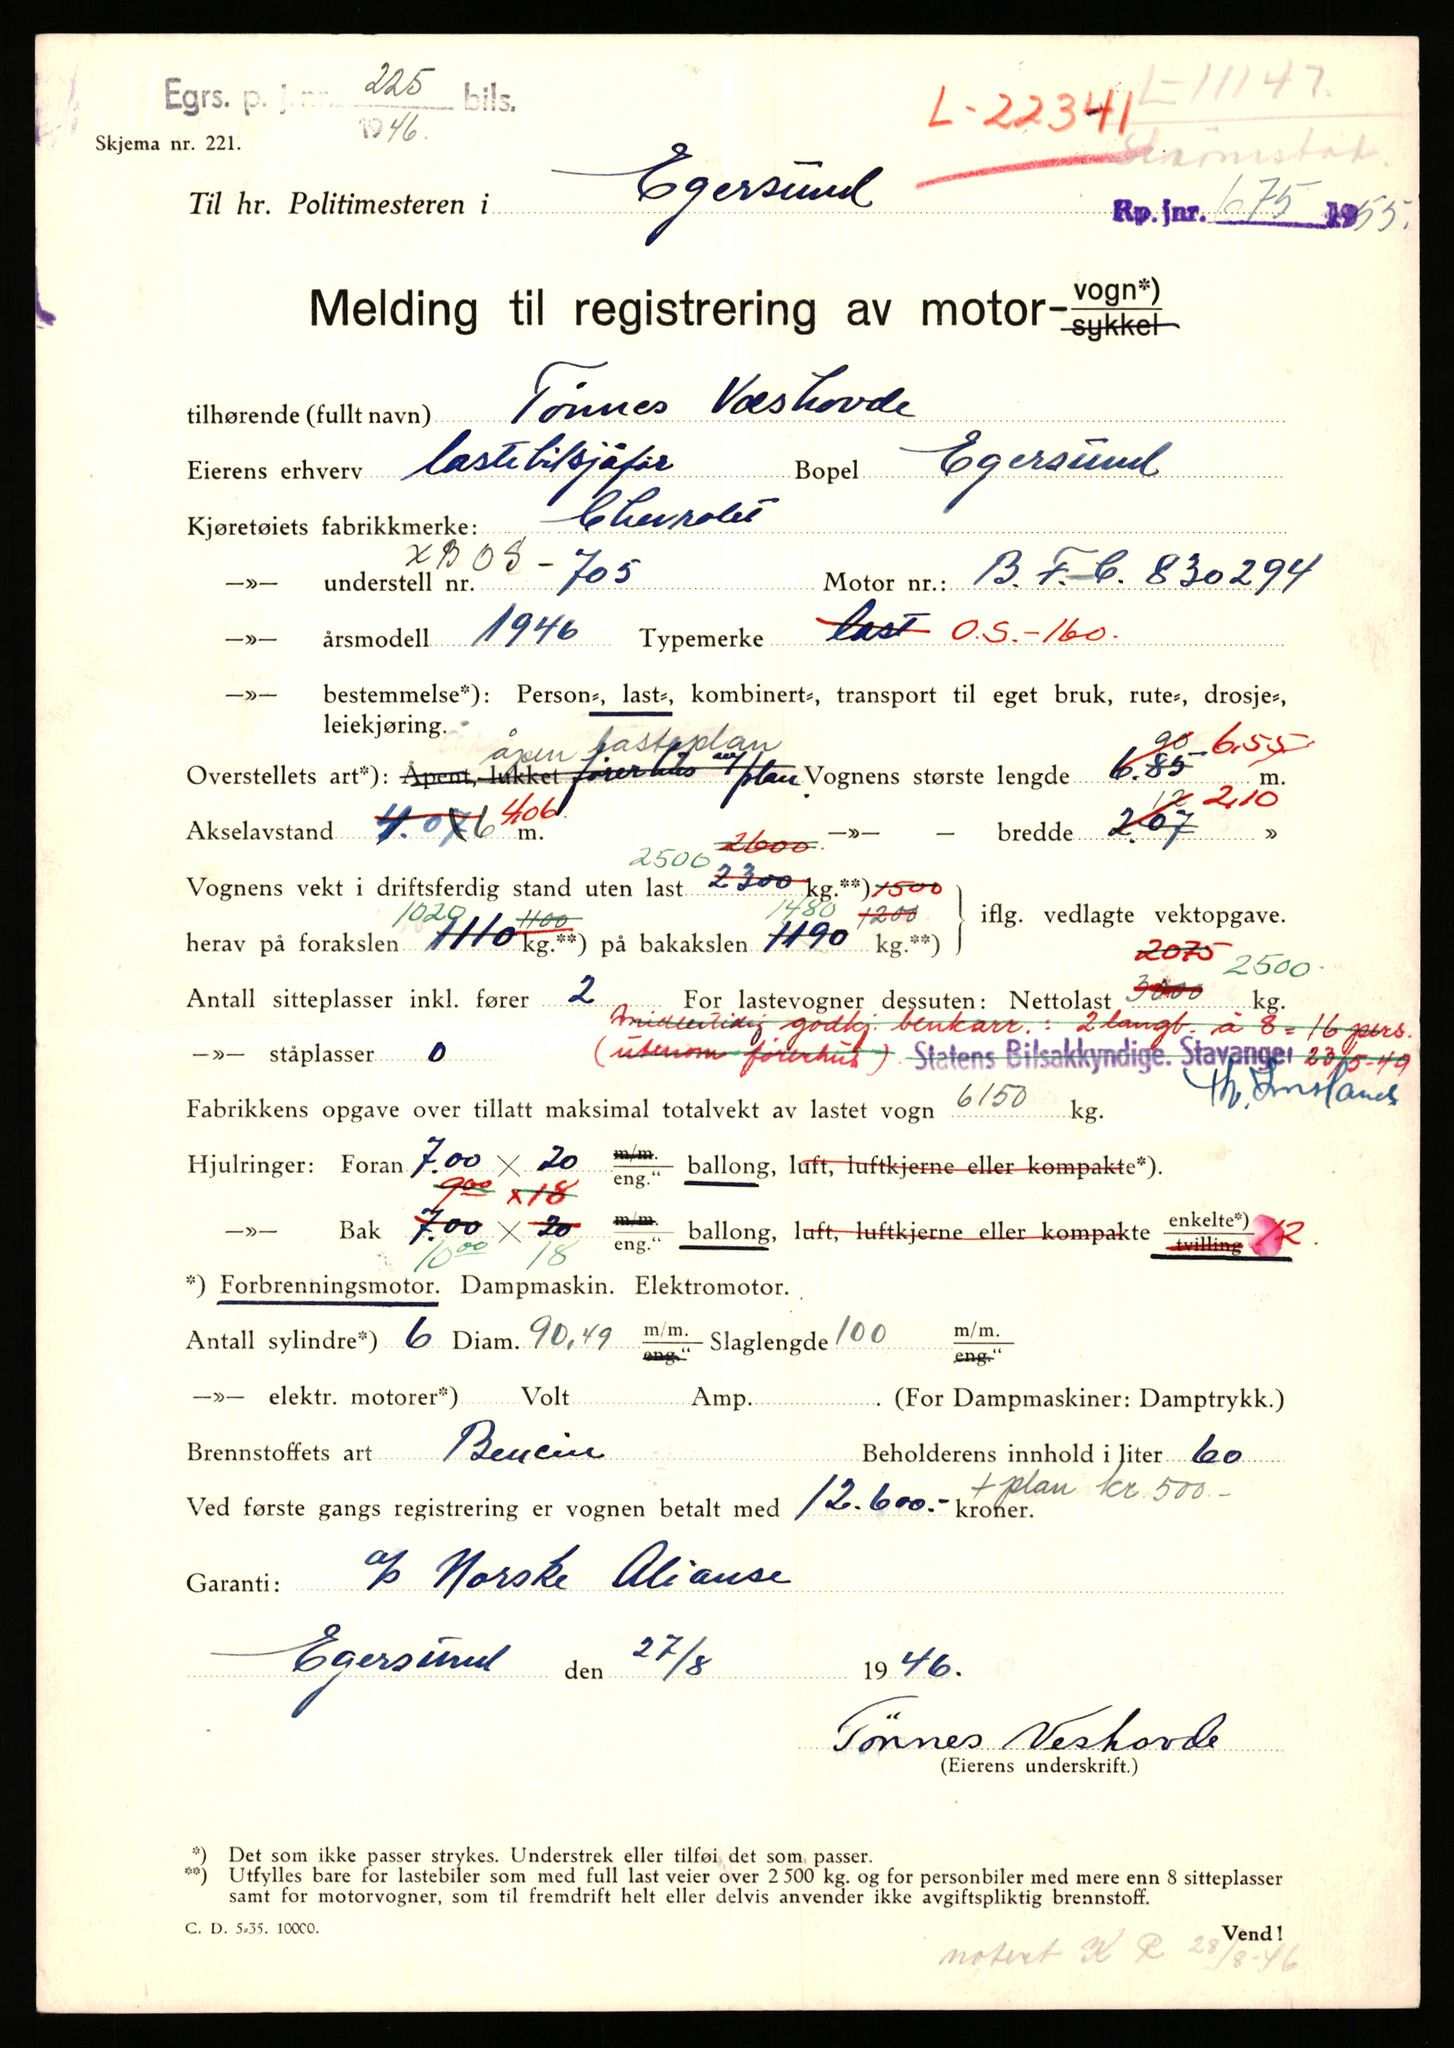 Egrs. p. j. nr. 225 bils.
1946.
L-11147.
L-22341
Skjema nr. 221.
Til hr. Politimesteren i Egersund
Rp. jnr. 675 1955.
Melding til registrering av motor-vogn*)
sykkel
tilhørende (fullt navn) Tönnes Væshovde
Eierens erhverv lastebilsjåfør Bopel Egersund
Kjøretøiets fabrikkmerke: Chevrolet
—»— understell nr. XBOS - 705 Motor nr.: B.F.C. 830294
—»— årsmodell 1946 Typemerke last O.S.-160.
—»— bestemmelse*): Person-, last-, kombinert-, transport til eget bruk, rute-, drosje-,
leiekjøring.
åpen lasteplan 90 6.55
Overstellets art*): Åpent, lukket førerhus av/plan. Vognens største lengde 6.85 m.
406 12 2,10
Akselavstand 4.07 6 m. —»— — bredde 2.07 »
2500 2600
Vognens vekt i driftsferdig stand uten last 2300 kg.**) 1500
1020 1100 1480 1200
herav på forakslen 1110 kg.**) på bakakslen 1190 kg.**) iflg. vedlagte vektopgave.
2075 2500
Antall sitteplasser inkl. fører 2 For lastevogner dessuten: Nettolast 3000 kg.
Midlertidig godkj. benkarr.: 2 langb. à 8 = 16 pers.
—»— ståplasser 0 (utenom førerhus) Statens Bilsakkyndige. Stavanger 23/5-49
Fabrikkens opgave over tillatt maksimal totalvekt av lastet vogn 6150 kg.
Hjulringer: Foran 7.00 × 20 m/m. eng." ballong, luft, luftkjerne eller kompakte*).
9.00 × 18
—»— Bak 7.00 × 20 m/m. eng." ballong, luft, luftkjerne eller kompakte enkelte*) tvilling 12.
10.00 18
*) Forbrenningsmotor. Dampmaskin. Elektromotor.
Antall sylindre*) 6 Diam. 90,49 m/m. eng." Slaglengde 100 m/m. eng."
—»— elektr. motorer*) Volt Amp. . (For Dampmaskiner: Damptrykk.)
Brennstoffets art Bencin Beholderens innhold i liter 60
+ plan kr. 500.-
Ved første gangs registrering er vognen betalt med 12.600.- kroner.
Garanti: a/s Norske Alianse
Egersund den 27/8 1946.
Tönnes Veshovde
(Eierens underskrift.)
*) Det som ikke passer strykes. Understrek eller tilføi det som passer.
**) Utfylles bare for lastebiler som med full last veier over 2 500 kg. og for personbiler med mere enn 8 sitteplasser
samt for motorvogner, som til fremdrift helt eller delvis anvender ikke avgiftspliktig brennstoff.
C. D. 5-35. 10000.
Vend!
notert K R 28/8-46